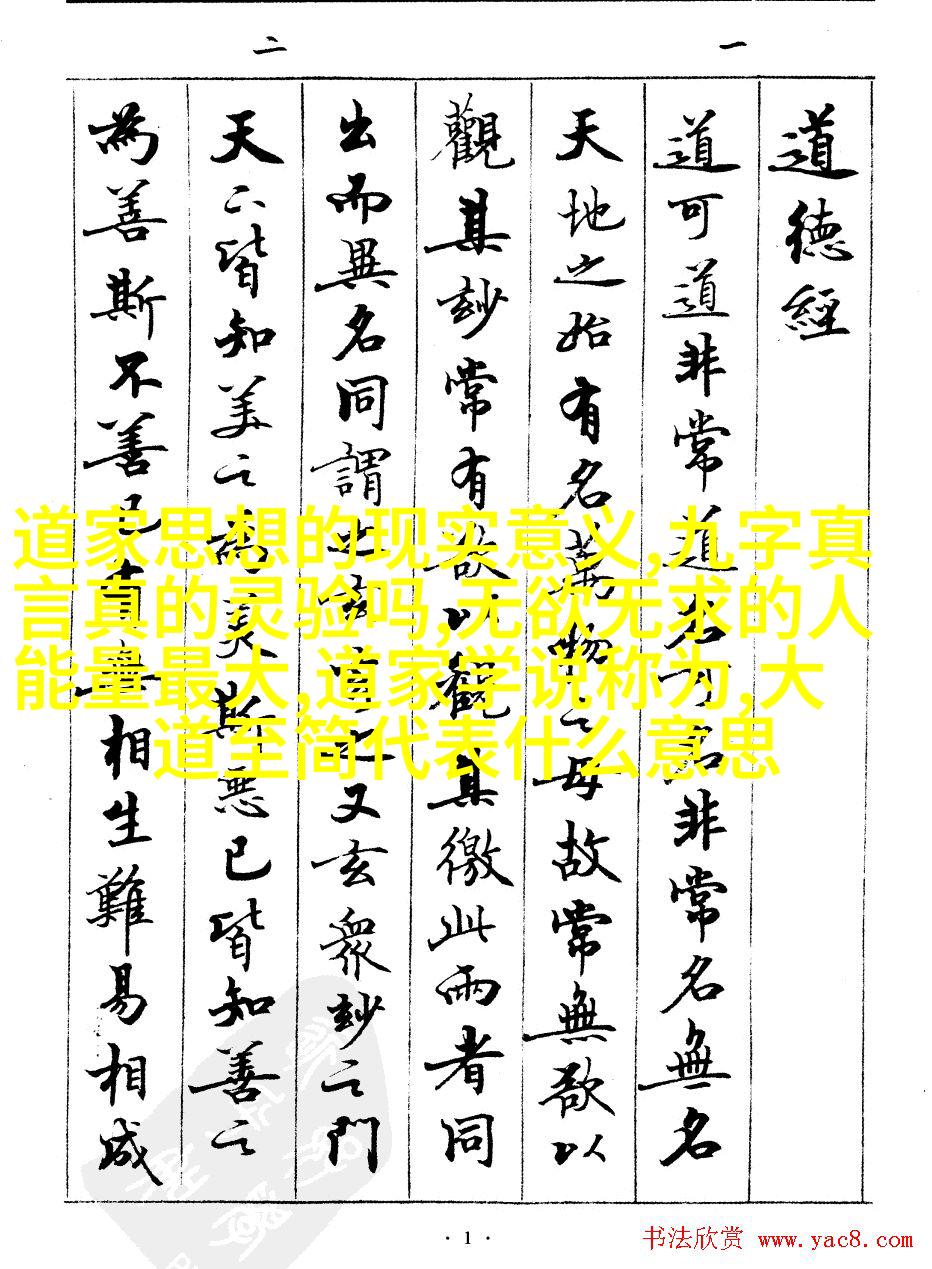 二
一
道德經
道可道非常道名可名非常名無名
天地之始有名萬物之母故常無欲以
觀其玅常有欲以觀其徼此兩者同
出而異名同謂之玄玄之又玄衆玅之門
天下皆知美之為美斯惡已皆知善之
為善斯不善已有無相生難易相成
道家思想的现实意义,九字真
言真的灵验吗,无欲无求的人
能量最大,道家学说称为,大
道至简代表什么意思
· 1 ·
书法欣赏 www.yac8.com